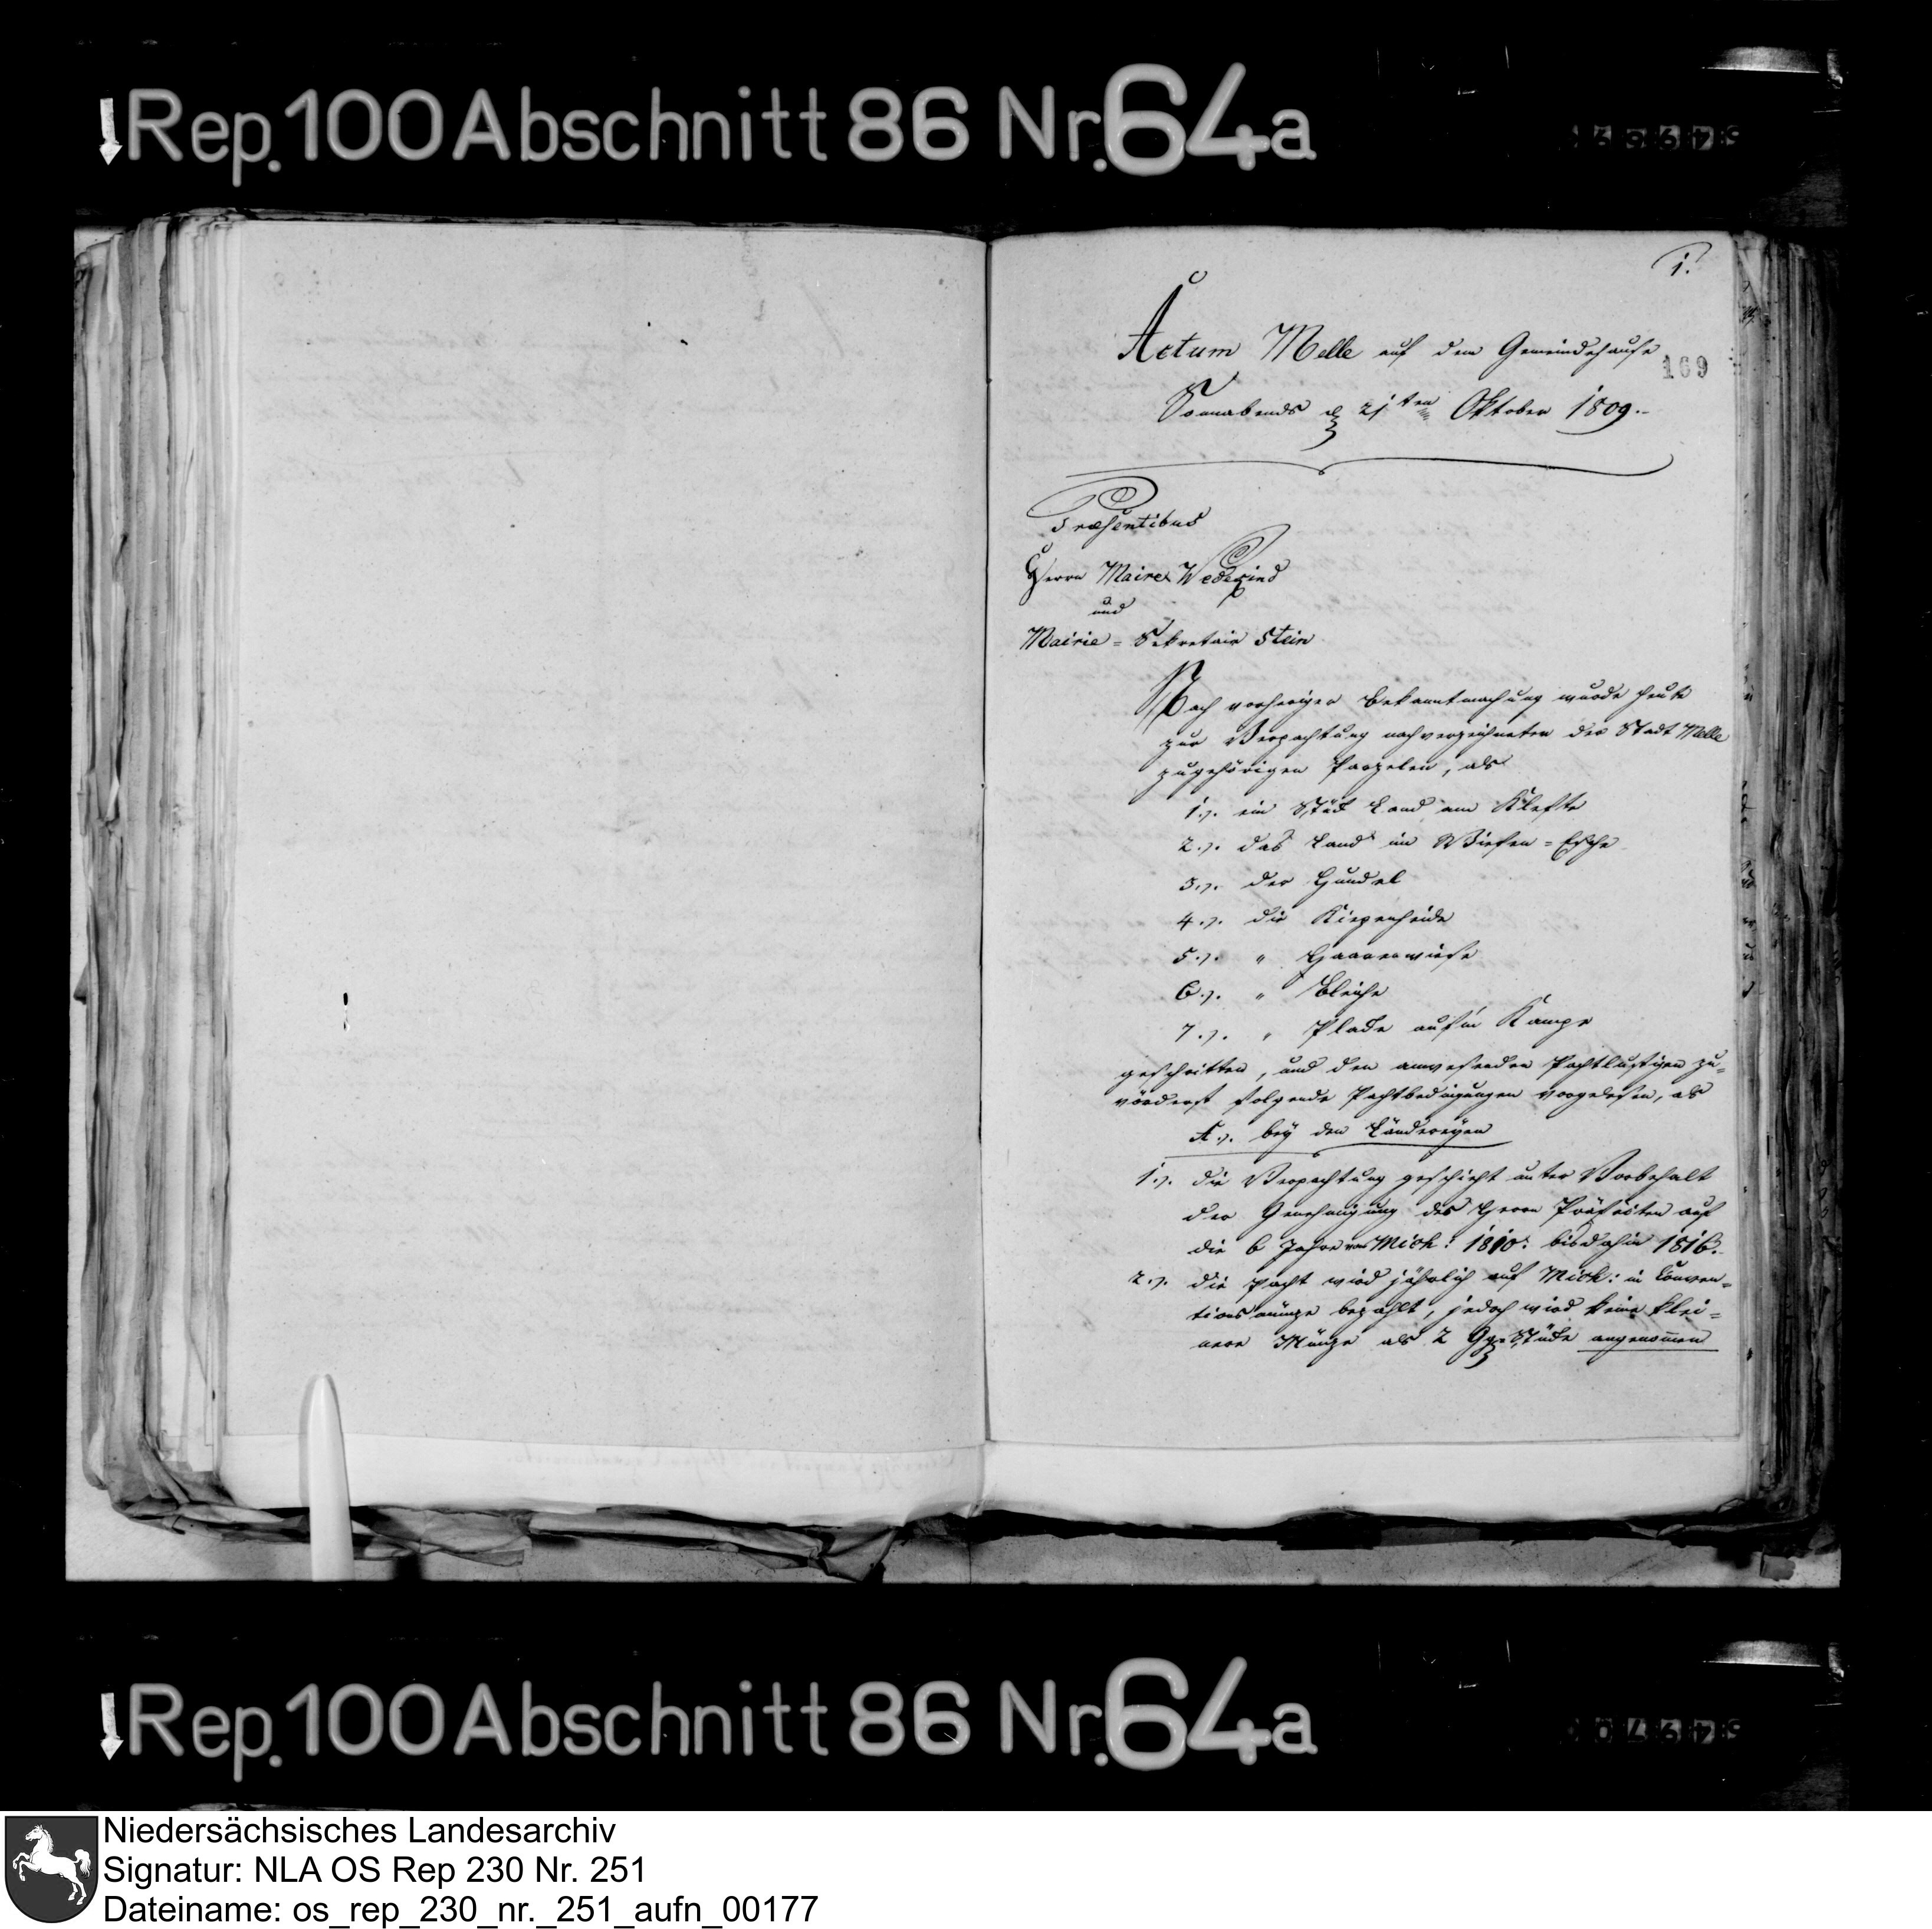 Rep. 100 Abschnitt 86 Nr. 64a
1.
Actum Melle auf dem Gemeindehause
169
Sonnabends d 21ten Oktober 1809.
Praesentibus
Herrn Maire Wedekind
und
Mairie-Sekretair Stein
Nach vorheriger Bekanntmachung wurde heute
zur Verpachtung nachverzeichneten der Stadt Melle
zugehörigen Parzelen, als
1.). ein Stück Land am Klefte
2.). das Land im Wiesen-Esche
3.). der Hundel
4.). die Kiepenheide
5.). " Haarenwiese
6.). " Bleiche
7.). " Placke auf'm Kampe
geschritten, und den anwesenden Pachtlustigen zu-
vörderst folgende Pachtbedingungen vorgelesen, als
A.). bey den Ländereyen
1.). die Verpachtung geschieht unter Vorbehalt
der Genehmigung des Herrn Präfekten auf
die 6 Jahre von Mich: 1810. bis dahin 1816.
2.). die Pacht wird jährlich auf Mich: in Conven-
tionsmünze bezahlt, jedoch wird keine klei-
nere Münze als 2 Ggr Stücke angenommen
Rep. 100 Abschnitt 86 Nr. 64a
Niedersächsisches Landesarchiv
Signatur: NLA OS Rep 230 Nr. 251
Dateiname: os_rep_230_nr._251_aufn_00177